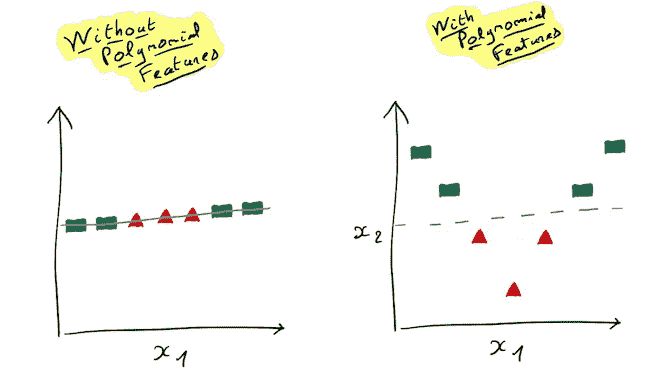 Without
Polynomial
Features
With
Polynomial
Features
x₂
x₁
x₁